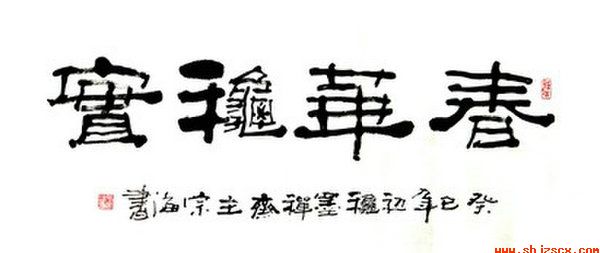 春華龝實
癸巳年初龝墨禪齋主宗海書
www.shjzscx.com